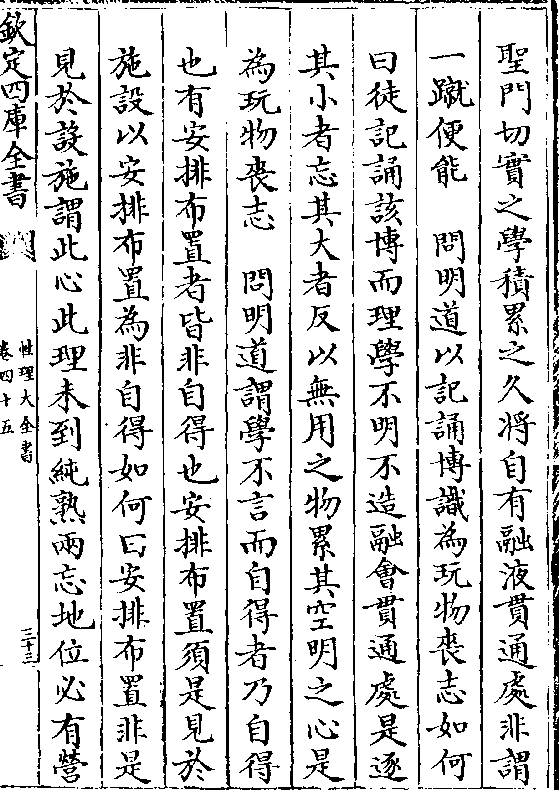 聖門切實之學積累之久將自有融液貫通處非謂
一蹴便能　問明道以記誦博識為玩物喪志如何
曰徒記誦該博而理學不明不造融會貫通處是逐
其小者忘其大者反以無用之物累其空明之心是
為玩物喪志　問明道謂學不言而自得者乃自得
也有安排布置者皆非自得也安排布置須是見於
施設以安排布置為非自得如何曰安排布置非是
見於設施謂此心此理未到純熟兩忘地位必有營
欽定四庫全書
性理大全書
卷四十五
三十三